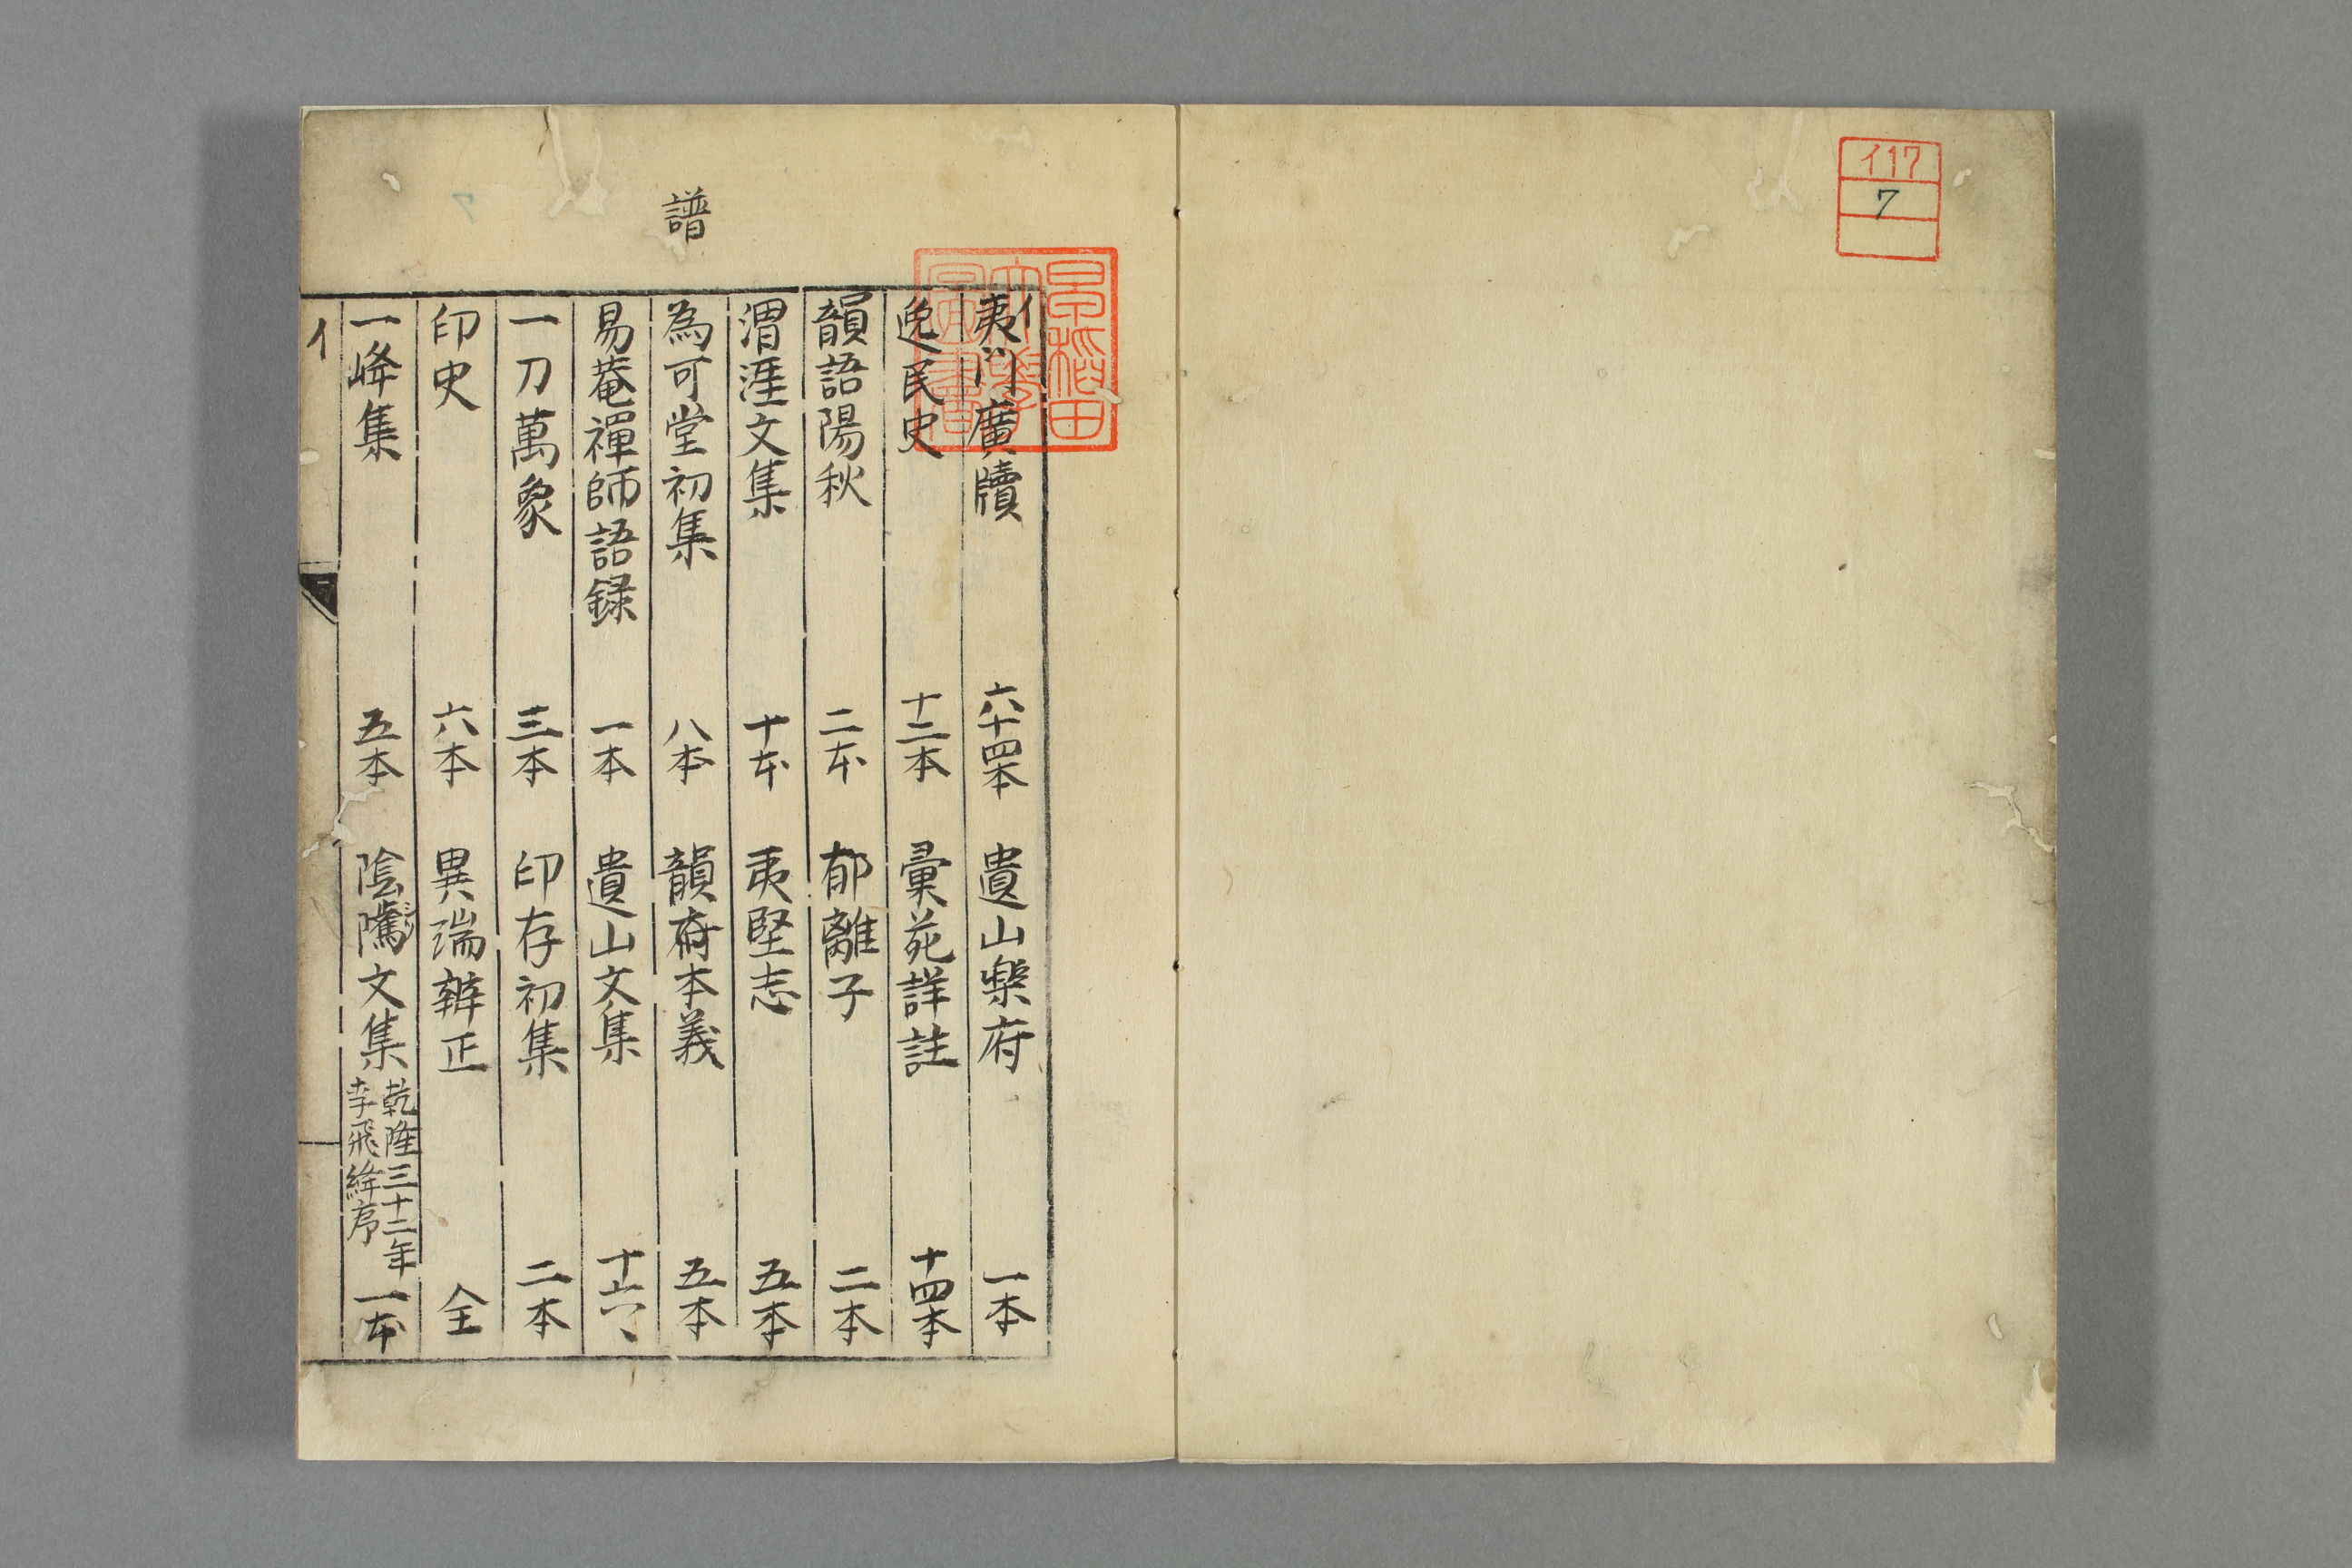 イ17
7
譜
イ
夷門廣牘 六十四本 遺山樂府 一本
逸民史 十二本 彙苑詳註 十四本
韻語陽秋 二本 郁離子 二本
渭涯文集 十本 夷堅志 五本
為可堂初集 八本 韻府本義 五本
易菴禪師語録 一本 遺山文集 十六、
一刀萬象 三本 印存初集 二本
印史 六本 異端辨正 全
一峰集 五本 陰隲文集 乾隆三十二年 李飛絳序 一本
イ
一